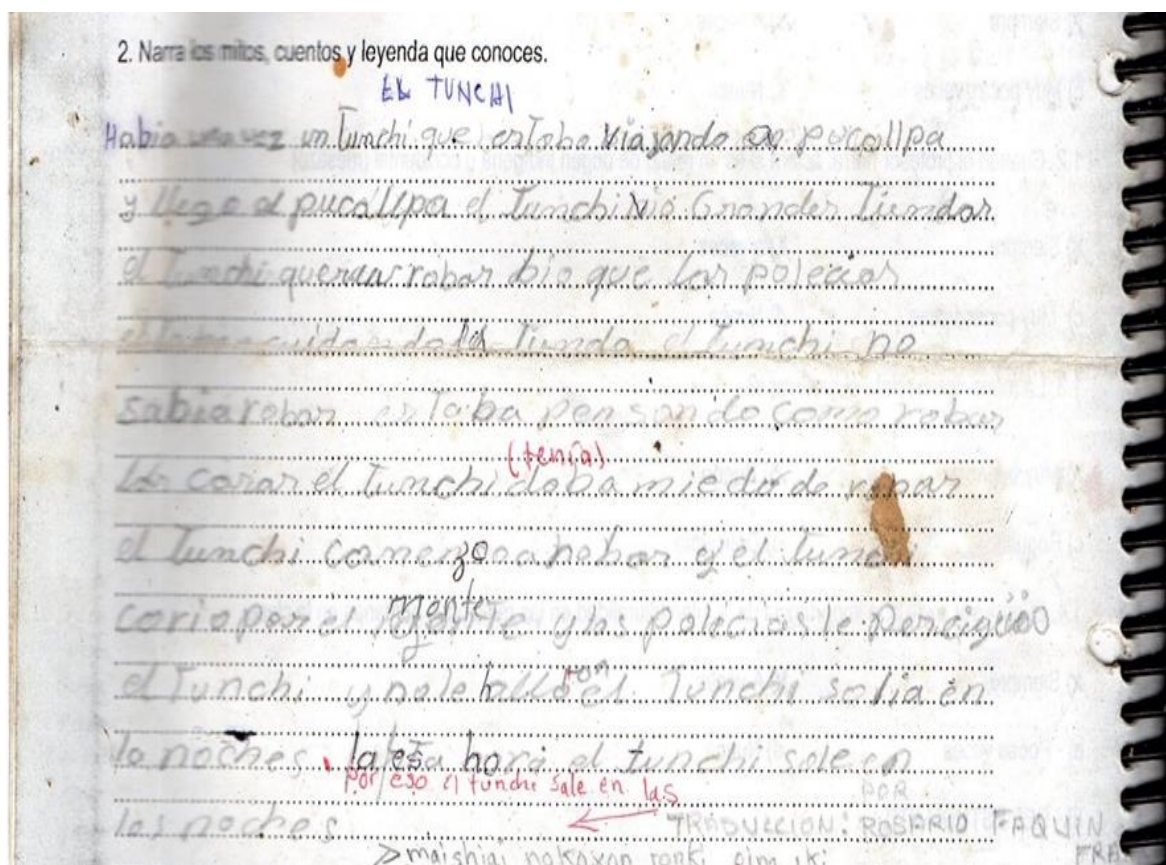 2. Narra los mitos, cuentos y leyenda que conoces.
EL TUNCHI
Habia una vez un Tunchi que estaba viajando a pucallpa
y llego a pucallpa el Tunchi vio Grandes Tiendas
el Tunchi queria robar bio que las polecias
estaba cuidando la Tienda el Tunchi no
sabia robar estaba pensando como robar
(tenía)
las cosas el Tunchi daba miedo de robar
el Tunchi comenzo a robar y el Tunchi
monte
corio por el y las polecias le Percigio
ron
el Tunchi y no le hallo el Tunchi salia en
la noches. hora el tunchi sale en
por eso el tunchi sale en las
POR
las noches TRADUCCION: ROSARIO FAQUIN